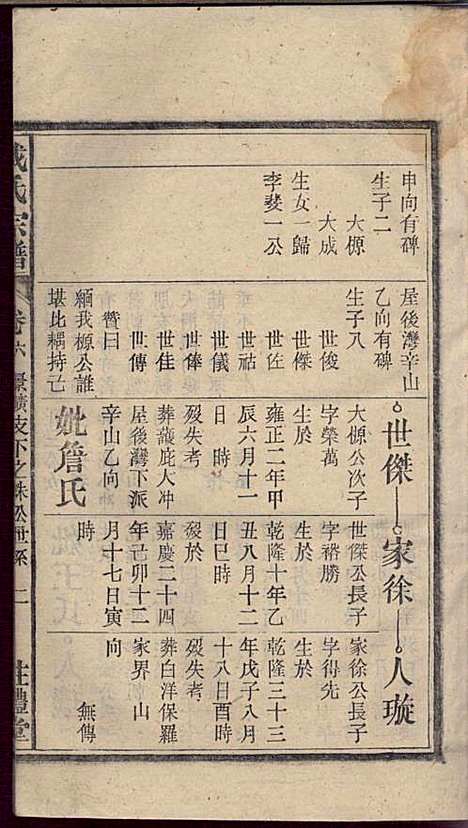 申向有碑
生子二
大榞
大成
生女一歸
李斐一公
屋後灣辛山
乙向有碑
生子八
世俊
世傑
世佐
世祜
世儀
世俸
世佳
世傳
贊曰
緬我榞公誰
堪比耦持己
世傑
大榞公次子
字榮萬
生於
雍正二年甲
辰六月十一
日 時
歿失考
葬蘐庇大冲
屋後灣下派
辛山乙向
妣詹氏
家徐
世傑公長子
字裕勝
生於
乾隆十年乙
丑八月十二
日巳時
歿於
嘉慶二十四
年己卯十二
月十七日寅
時
人璇
家徐公長子
字得先
生於
乾隆三十三
年戊子八月
十八日酉時
歿失考
葬白洋保羅
家界 山
向
無傳
戴氏宗譜
卷六
景
支下之
公世系
二
禮堂